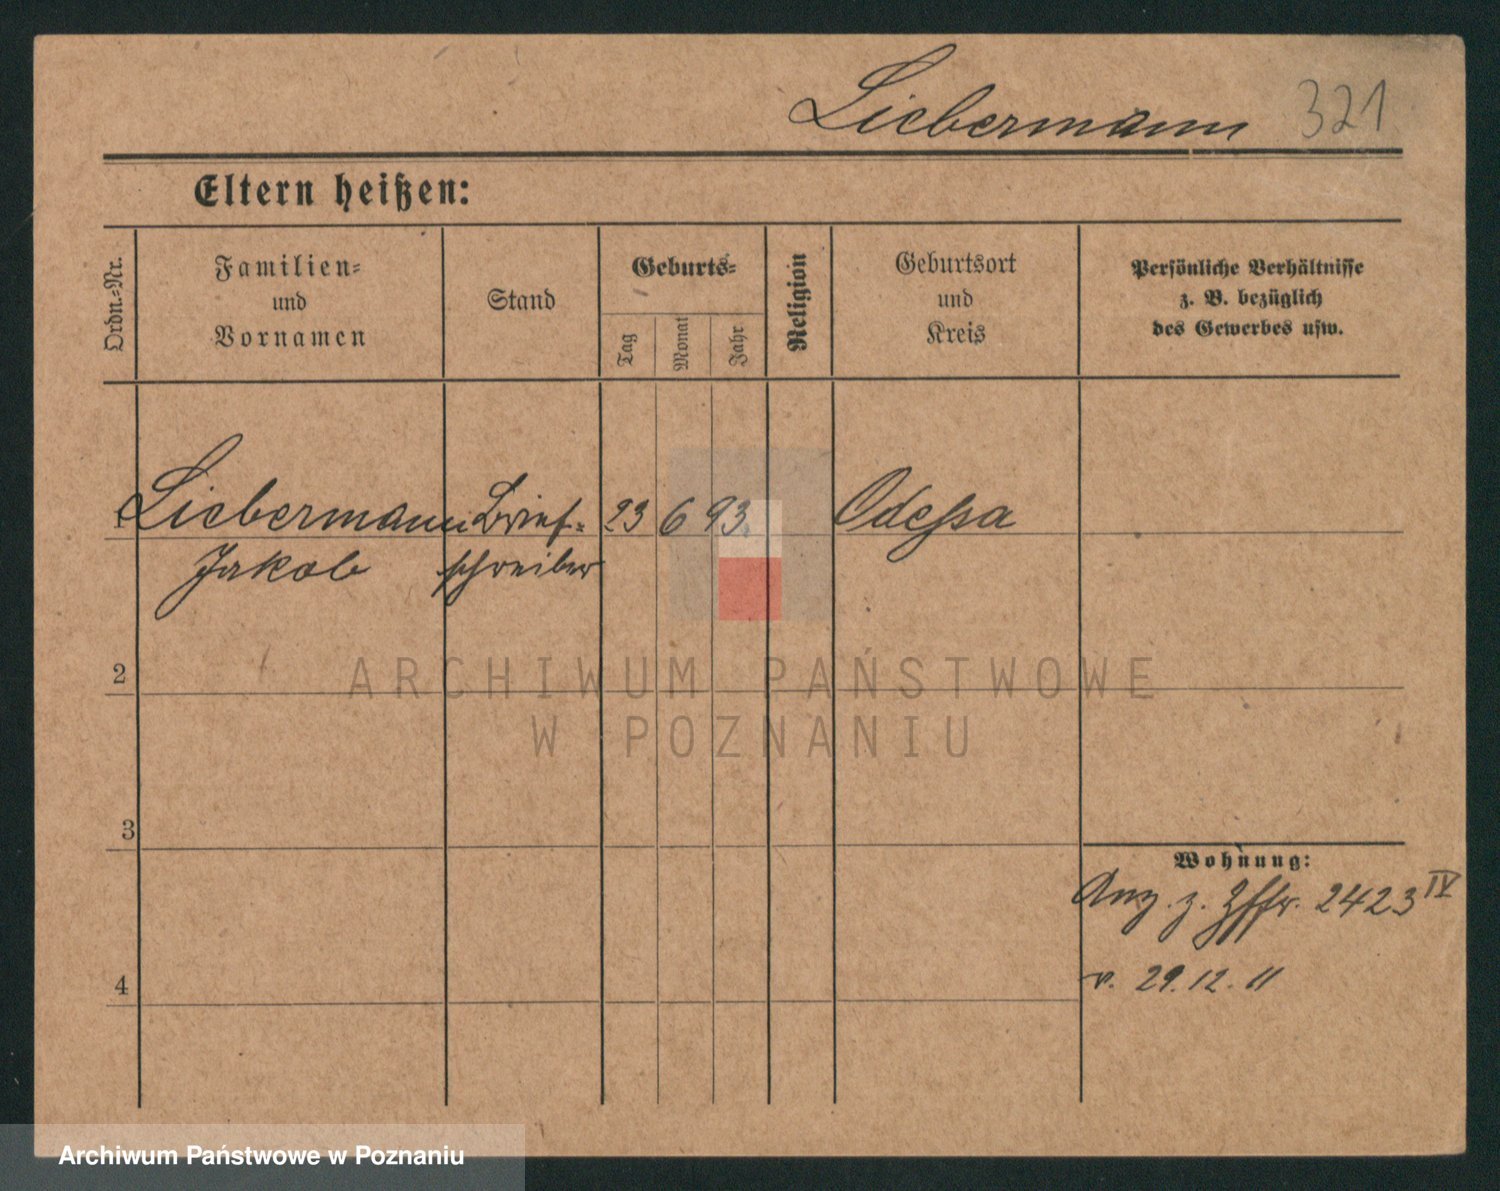 Liebermann 321
Eltern heißen:
Ordn.=Nr.
Familien=
und
Vornamen
Stand
Geburts=
Tag
Monat
Jahr
Religion
Geburtsort
und
Kreis
Persönliche Verhältnisse
z. B. bezüglich
des Gewerbes usw.
1 Liebermann Brief= 23 6 93. Odessa
Jakob schreiber
ARCHIWUM PAŃSTWOWE
W POZNANIU
2
3
Wohnung:
Anz. z. 2423 IV
4
v. 29.12.11
Archiwum Państwowe w Poznaniu